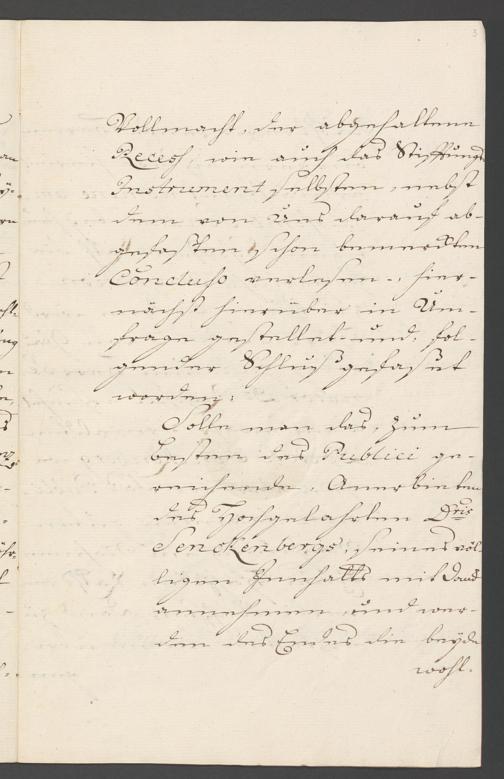 3
Vollmacht, der abgehaltene
Recess, wie auch das Stifftungs
Instrument selbsten, nebst
dem von Uns darauf ab-
gefasten schon bemerckten
Concluso verlesen-, hier-
nächst hierüber in Um-
frage gestellet- und, fol-
gender Schluß gefaßet
worden:
Solle man das, zum
besten des Publici ge-
reichende, Anerbieten
des Hochgelahrten Dris
Senckenbergs, seines völ-
ligen Innhalts mit Danck
annehmen, und wer-
den des Endes die beyde
wohl-